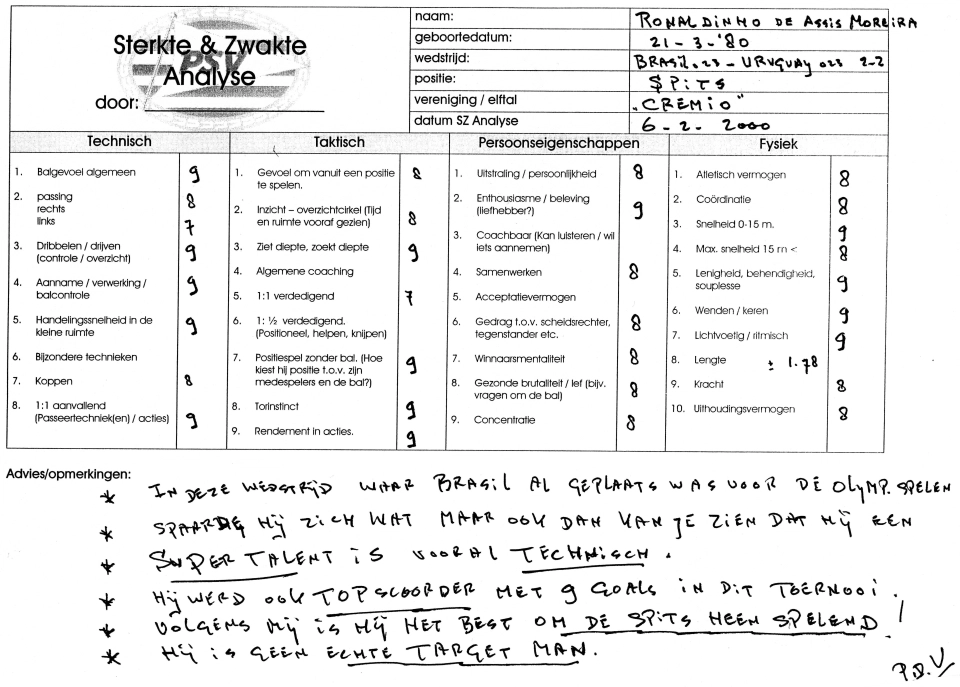 Sterkte & Zwakte
PSV
Analyse
door:
naam: RONALDINHO DE ASSIS MOREIRA
geboortedatum: 21-3-'80
wedstrijd: BRASIL.023 - URUGUAY 023 2-2
positie: SPITS
vereniging / elftal "CREMIO"
datum SZ Analyse 6-2-2000
Technisch
1. Balgevoel algemeen 9
2. passing
rechts 8
links 7
3. Dribbelen / drijven 9
(controle / overzicht)
4. Aanname / verwerking / 9
balcontrole
5. Handelingssnelheid in de 9
kleine ruimte
6. Bijzondere technieken
7. Koppen 8
8. 1:1 aanvallend
(Passeertechniek(en) / acties) 9
Taktisch
1. Gevoel om vanuit een positie 8
te spelen.
2. Inzicht – overzichtcirkel (Tijd
en ruimte vooraf gezien) 8
3. Ziet diepte, zoekt diepte 9
4. Algemene coaching
5. 1:1 verdedigend 7
6. 1: ½ verdedigend.
(Positioneel, helpen, knijpen)
7. Positiespel zonder bal. (Hoe 9
kiest hij positie t.o.v. zijn
medespelers en de bal?)
8. Torinstinct 9
9. Rendement in acties. 9
Persoonseigenschappen
1. Uitstraling / persoonlijkheid 8
2. Enthousiasme / beleving 9
(liefhebber?)
3. Coachbaar (Kan luisteren / wil
iets aannemen)
4. Samenwerken 8
5. Acceptatievermogen
6. Gedrag t.o.v. scheidsrechter, 8
tegenstander etc.
7. Winnaarsmentaliteit 8
8. Gezonde brutaliteit / lef (bijv. 8
vragen om de bal)
9. Concentratie 8
Fysiek
1. Atletisch vermogen 8
2. Coördinatie 8
3. Snelheid 0-15 m. 9
4. Max. snelheid 15 m < 8
5. Lenigheid, behendigheid, 9
souplesse
6. Wenden / keren 9
7. Lichtvoetig / ritmisch 9
8. Lengte ± 1.78
9. Kracht 8
10. Uithoudingsvermogen 8
Advies/opmerkingen:
* IN DEZE WEDSTRIJD WAAR BRASIL AL GEPLAATS WAS VOOR DE OLYMP. SPELEN
* SPAARDE HIJ ZICH WAT MAAR OOK DAN KAN JE ZIEN DAT HIJ EEN
* SUPER TALENT IS VOORAL TECHNISCH.
* HIJ WERD OOK TOPSCOORDER MET 9 GOALS IN DIT TOERNOOI.
* VOLGENS MIJ IS HIJ HET BEST OM DE SPITS HEEN SPELEND!
* HIJ IS GEEN ECHTE TARGET MAN.
P.D.V